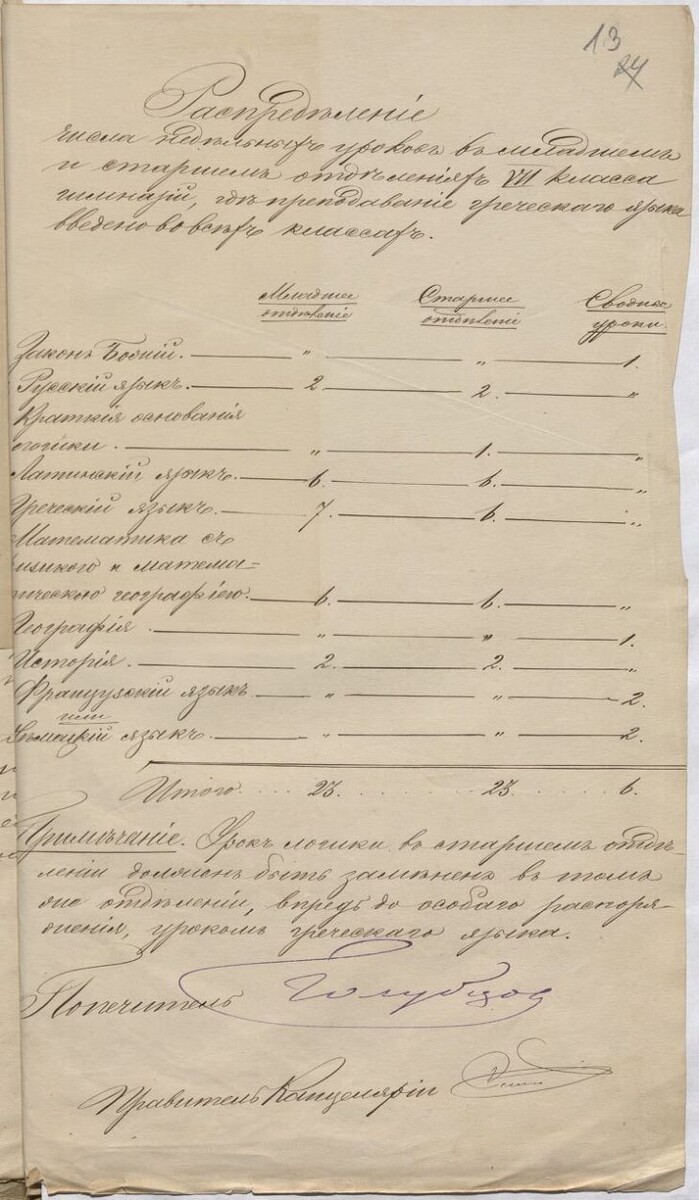 13
24
Распредѣленіе
числа недѣльныхъ уроковъ въ младшемъ
и старшемъ отдѣленіяхъ VII класса
гимназій, гдѣ преподаваніе греческаго языка
введено во всѣхъ классахъ.
Младшее отдѣленіе Старшее отдѣленіе Сводные уроки.
Законъ Божій. „ „ 1.
Русскій языкъ. 2 2. „
Краткія основанія
логики. „ 1. „
Латинскій языкъ. 6. 6. „
Греческій языкъ. 7. 6. „
Математика съ
физикою и матема-
тическою географіею. 6. 6. „
Географія. „ „ 1.
Исторія. 2. 2. „
Французскій языкъ „ „ 2.
или
Нѣмецкій языкъ. „ „ 2.
Итого. . . . 23. . . . . 23. . . . 6.
Примѣчаніе. Урокъ логики въ старшемъ отдѣ-
леніи долженъ быть замѣненъ въ томъ
же отдѣленіи, впредь до особаго распоря-
женія, урокомъ греческаго языка.
Попечитель Голубцов
Правитель Канцеляріи